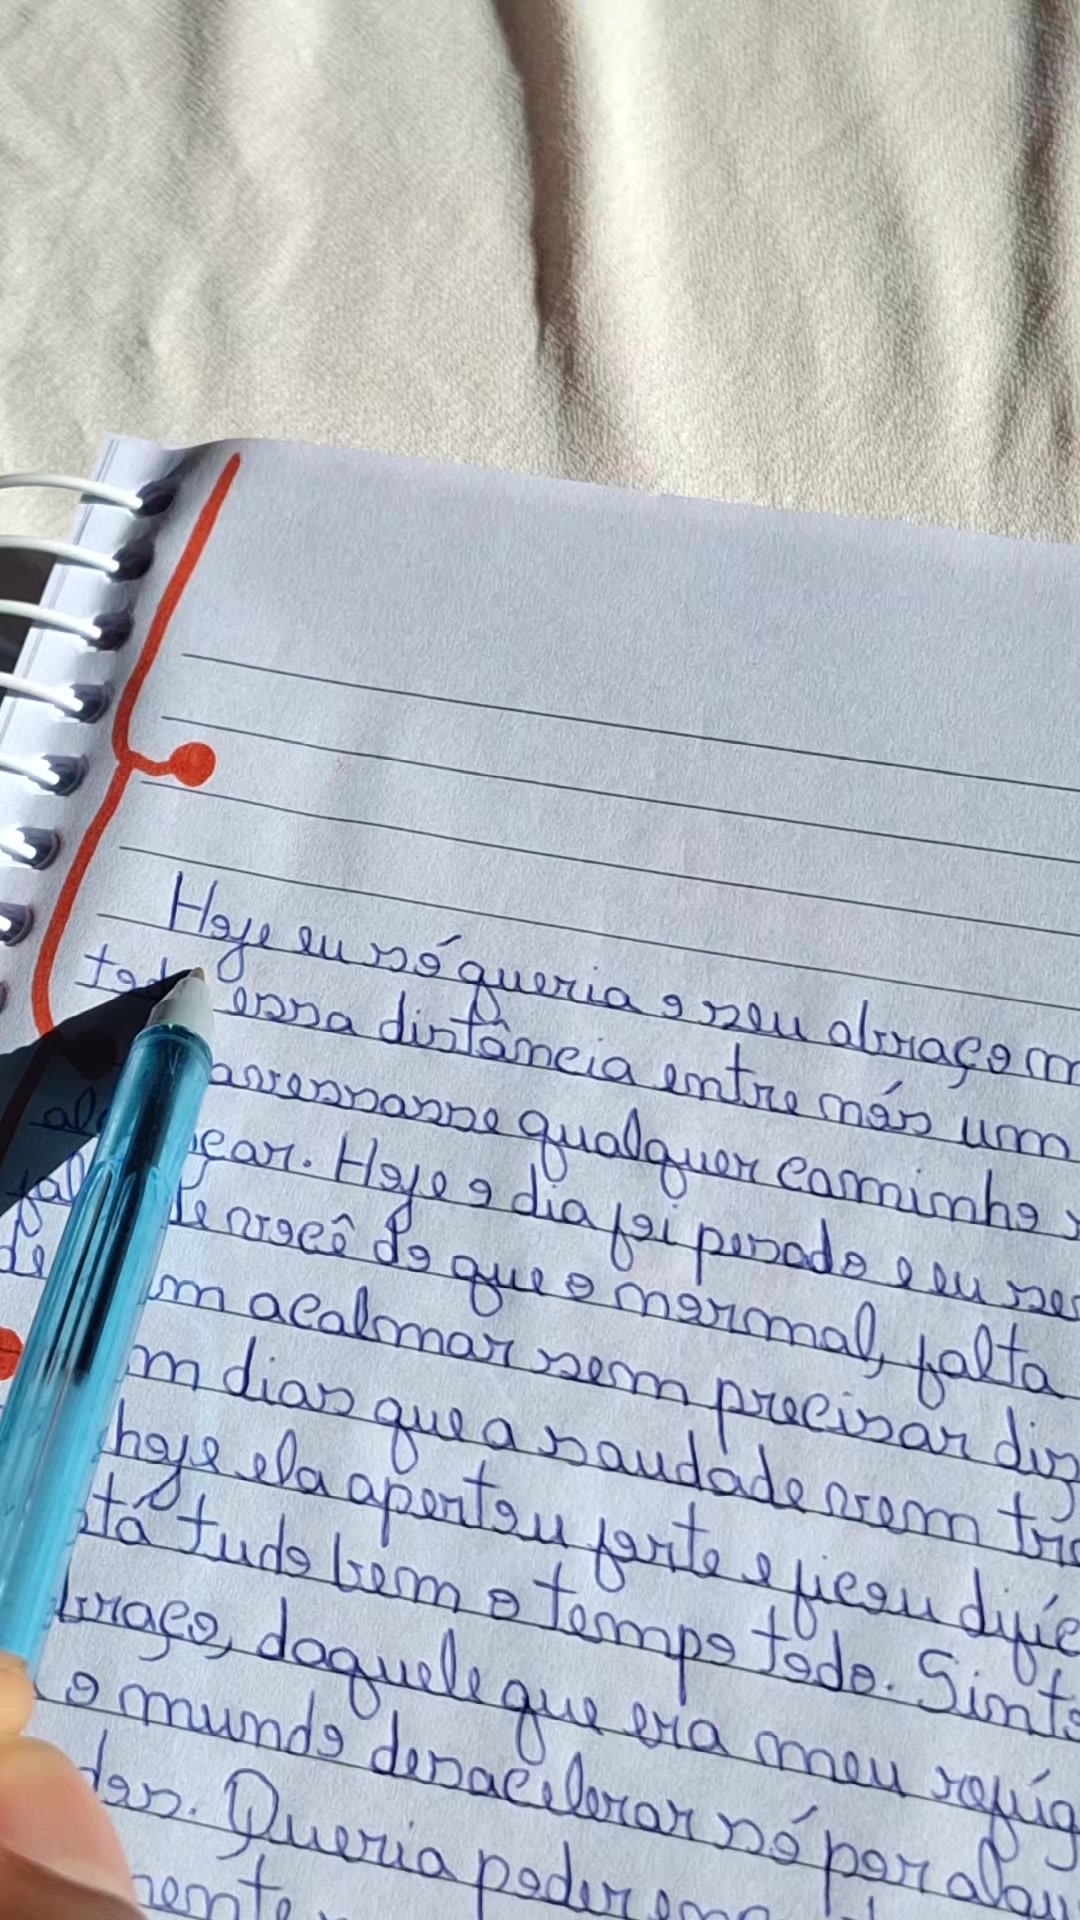 Hoje eu só queria o seu abraço m
essa distância entre nós um
qualquer caminho
çar. Hoje o dia foi pesado e eu
de você do que o normal, falta
m acalmar sem precisar diz
m dias que a saudade vem
hoje ela apertou forte e ficou difíc
stá tudo bem o tempo todo. Sinto
braço, daquele que era meu refúg
o mundo desacelerar só por algu
dos. Queria poder
mente